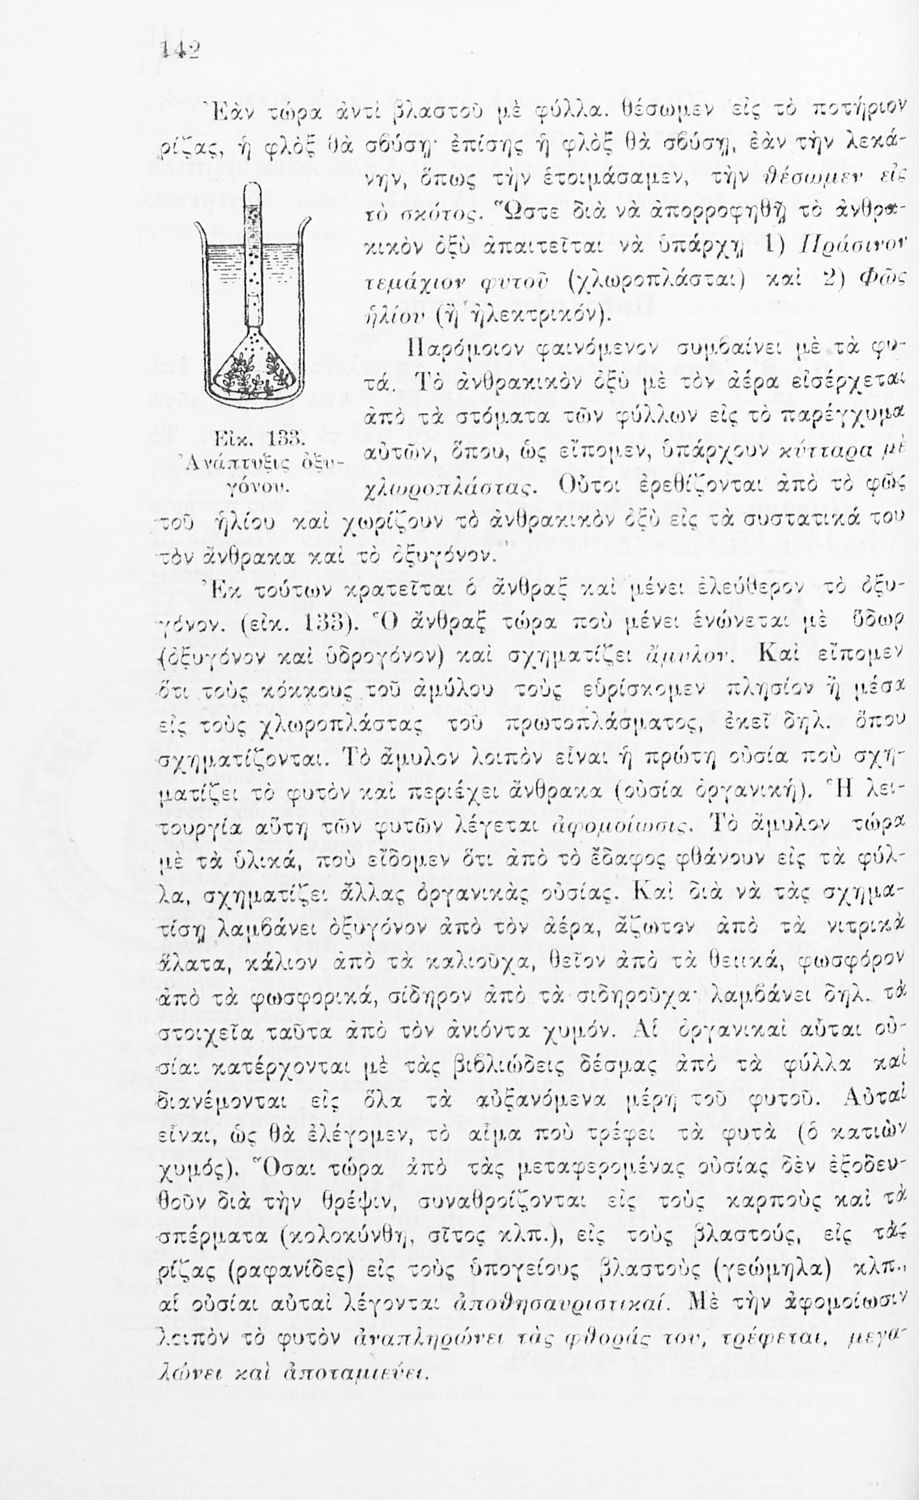 142
Ἐὰν τώρα ἀντὶ βλαστοῦ μὲ φύλλα. θέσωμεν εἰς τὸ ποτήριον
ρίζας, ἡ φλὸξ θὰ σβύσῃ· ἐπίσης ἡ φλὸξ θὰ σβύσῃ, ἐὰν τὴν λεκά-
νην, ὅπως τὴν ἑτοιμάσαμεν, τὴν θέσωμεν εἰς
τὸ σκότος. Ὥστε διὰ νὰ ἀπορροφηθῇ τὸ ἀνθρα-
κικὸν ὀξὺ ἀπαιτεῖται νὰ ὑπάρχῃ 1) Πράσινον
τεμάχιον φυτοῦ (χλωροπλάσται) καὶ 2) Φῶς
ἡλίου (ἢ ἠλεκτρικόν).
Παρόμοιον φαινόμενον συμβαίνει μὲ τὰ φυ-
τά. Τὸ ἀνθρακικὸν ὀξὺ μὲ τὸν ἀέρα εἰσέρχεται
ἀπὸ τὰ στόματα τῶν φύλλων εἰς τὸ παρέγχυμα
αὐτῶν, ὅπου, ὡς εἴπομεν, ὑπάρχουν κύτταρα μὲ
χλωροπλάστας. Οὗτοι ἐρεθίζονται ἀπὸ τὸ φῶς
Εἰκ. 133.
Ἀνάπτυξις ὀξυ-
γόνου.
τοῦ ἡλίου καὶ χωρίζουν τὸ ἀνθρακικὸν ὀξὺ εἰς τὰ συστατικά του
τὸν ἄνθρακα καὶ τὸ ὀξυγόνον.
Ἐκ τούτων κρατεῖται ὁ ἄνθραξ καὶ μένει ἐλεύθερον τὸ ὀξυ-
γόνον. (εἰκ. 133). Ὁ ἄνθραξ τώρα ποὺ μένει ἑνώνεται μὲ ὕδωρ
(ὀξυγόνον καὶ ὑδρογόνον) καὶ σχηματίζει ἄμυλον. Καὶ εἴπομεν
ὅτι τοὺς κόκκους τοῦ ἀμύλου τοὺς εὑρίσκομεν πλησίον ἢ μέσα
εἰς τοὺς χλωροπλάστας τοῦ πρωτοπλάσματος, ἐκεῖ δηλ. ὅπου
σχηματίζονται. Τὸ ἄμυλον λοιπὸν εἶναι ἡ πρώτη οὐσία ποὺ σχη-
ματίζει τὸ φυτὸν καὶ περιέχει ἄνθρακα (οὐσία ὀργανική). Ἡ λει-
τουργία αὕτη τῶν φυτῶν λέγεται ἀφομοίωσις. Τὸ ἄμυλον τώρα
μὲ τὰ ὑλικά, ποὺ εἴδομεν ὅτι ἀπὸ τὸ ἔδαφος φθάνουν εἰς τὰ φύλ-
λα, σχηματίζει ἄλλας ὀργανικὰς οὐσίας. Καὶ διὰ νὰ τὰς σχημα-
τίσῃ λαμβάνει ὀξυγόνον ἀπὸ τὸν ἀέρα, ἄζωτον ἀπὸ τὰ νιτρικὰ
ἅλατα, κάλιον ἀπὸ τὰ καλιοῦχα, θεῖον ἀπὸ τὰ θειικά, φωσφόρον
ἀπὸ τὰ φωσφορικά, σίδηρον ἀπὸ τὰ σιδηροῦχα· λαμβάνει δηλ. τὰ
στοιχεῖα ταῦτα ἀπὸ τὸν ἀνιόντα χυμόν. Αἱ ὀργανικαὶ αὗται οὐ-
σίαι κατέρχονται μὲ τὰς βιβλιώδεις δέσμας ἀπὸ τὰ φύλλα καὶ
διανέμονται εἰς ὅλα τὰ αὐξανόμενα μέρη τοῦ φυτοῦ. Αὐταὶ
εἶναι, ὡς θὰ ἐλέγομεν, τὸ αἷμα ποὺ τρέφει τὰ φυτὰ (ὁ κατιὼν
χυμός). Ὅσαι τώρα ἀπὸ τὰς μεταφερομένας οὐσίας δὲν ἐξοδευ-
θοῦν διὰ τὴν θρέψιν, συναθροίζονται εἰς τοὺς καρποὺς καὶ τὰ
σπέρματα (κολοκύνθη, σῖτος κλπ.), εἰς τοὺς βλαστούς, εἰς τὰς
ρίζας (ραφανίδες) εἰς τοὺς ὑπογείους βλαστοὺς (γεώμηλα) κλπ.,
αἱ οὐσίαι αὐταὶ λέγονται ἀποθησαυριστικαί. Μὲ τὴν ἀφομοίωσιν
λοιπὸν τὸ φυτὸν ἀναπληρώνει τὰς φθοράς του, τρέφεται, μεγα-
λώνει καὶ ἀποταμιεύει.